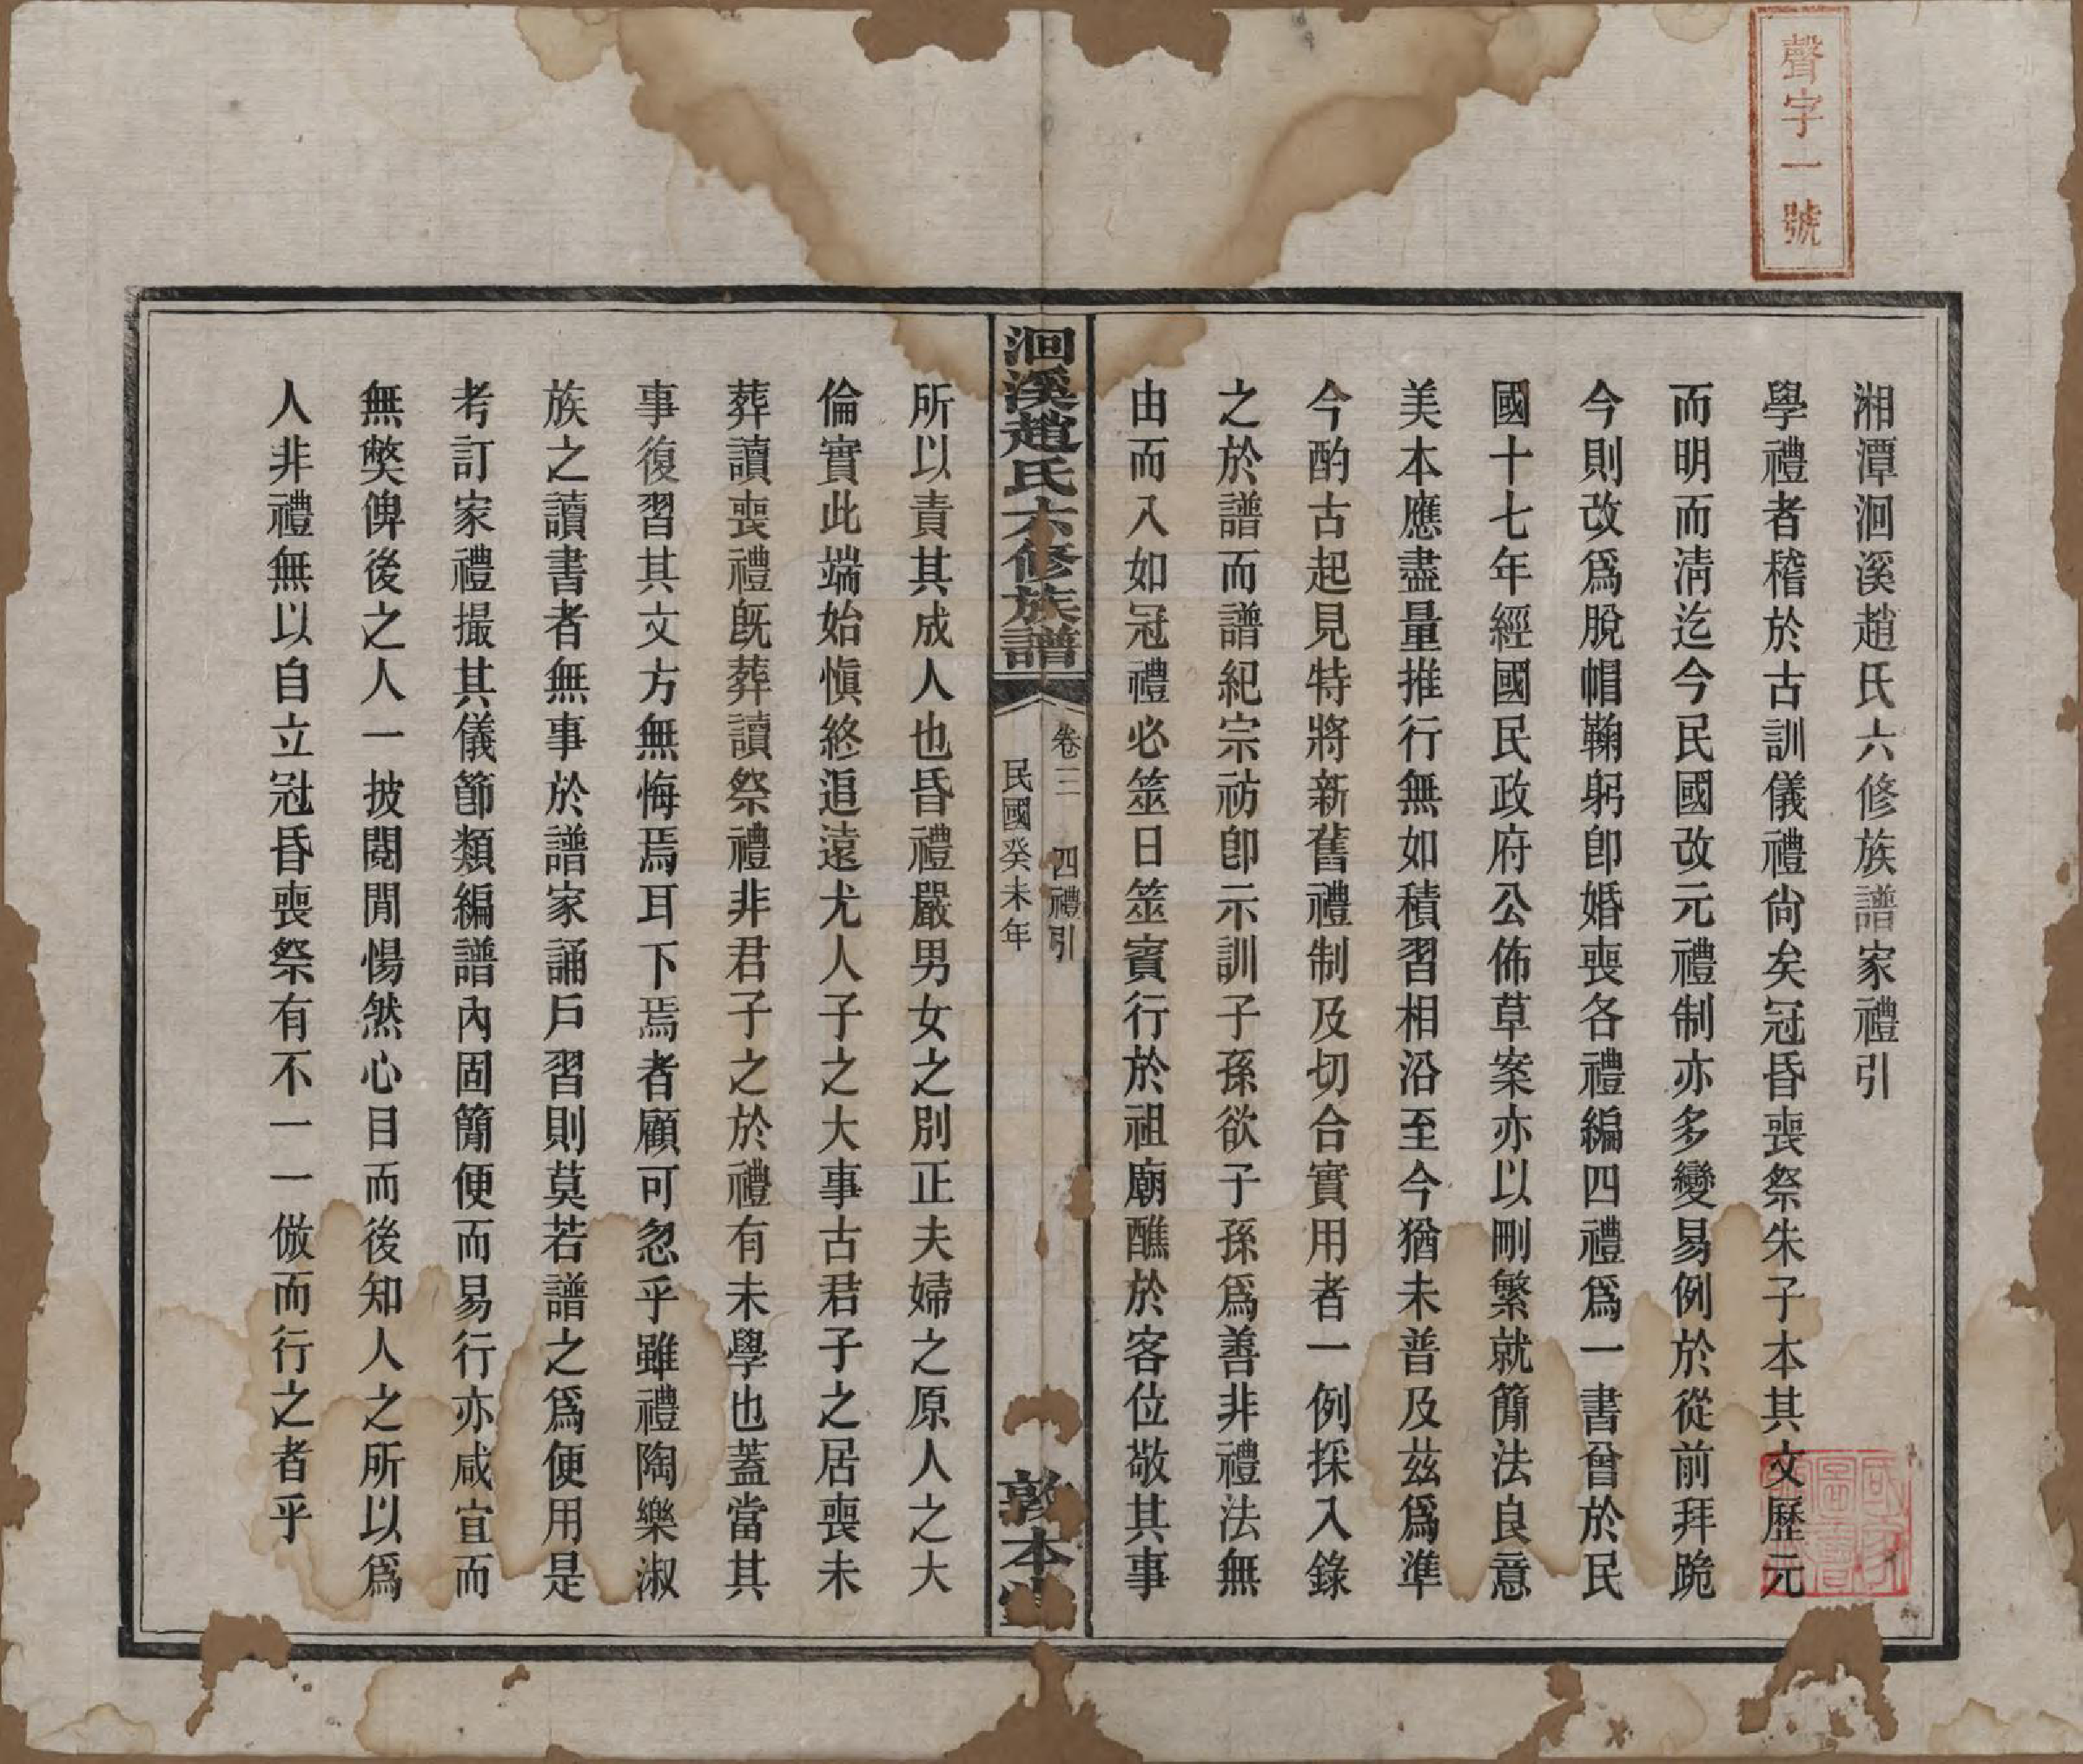 聲字一號
湘潭洄溪趙氏六修族譜家禮引
學禮者稽於古訓儀禮尙矣冠昏喪祭朱子本其文歷元
而明而淸迄今民國改元禮制亦多變易例於從前拜跪
今則改爲脫帽鞠躬卽婚喪各禮編四禮爲一書曾於民
國十七年經國民政府公佈草案亦以刪繁就簡法良意
美本應盡量推行無如積習相沿至今猶未普及茲爲準
今酌古起見特將新舊禮制及切合實用者一例採入錄
之於譜而譜紀宗祊卽示訓子孫欲子孫爲善非禮法無
由而入如冠禮必筮日筮賓行於祖廟醮於客位敬其事
洄溪趙氏六修族譜
卷三 四禮引
民國癸未年
敦本堂
所以責其成人也昏禮嚴男女之別正夫婦之原人之大
倫實此端始愼終追遠尤人子之大事古君子之居喪未
葬讀喪禮旣葬讀祭禮非君子之於禮有未學也蓋當其
事復習其文方無悔焉耳下焉者顧可忽乎雖禮陶樂淑
族之讀書者無事於譜家誦戶習則莫若譜之爲便用是
考訂家禮撮其儀節類編譜內固簡便而易行亦咸宜而
無獘俾後之人一披閱閒惕然心目而後知人之所以爲
人非禮無以自立冠昏喪祭有不一一倣而行之者乎